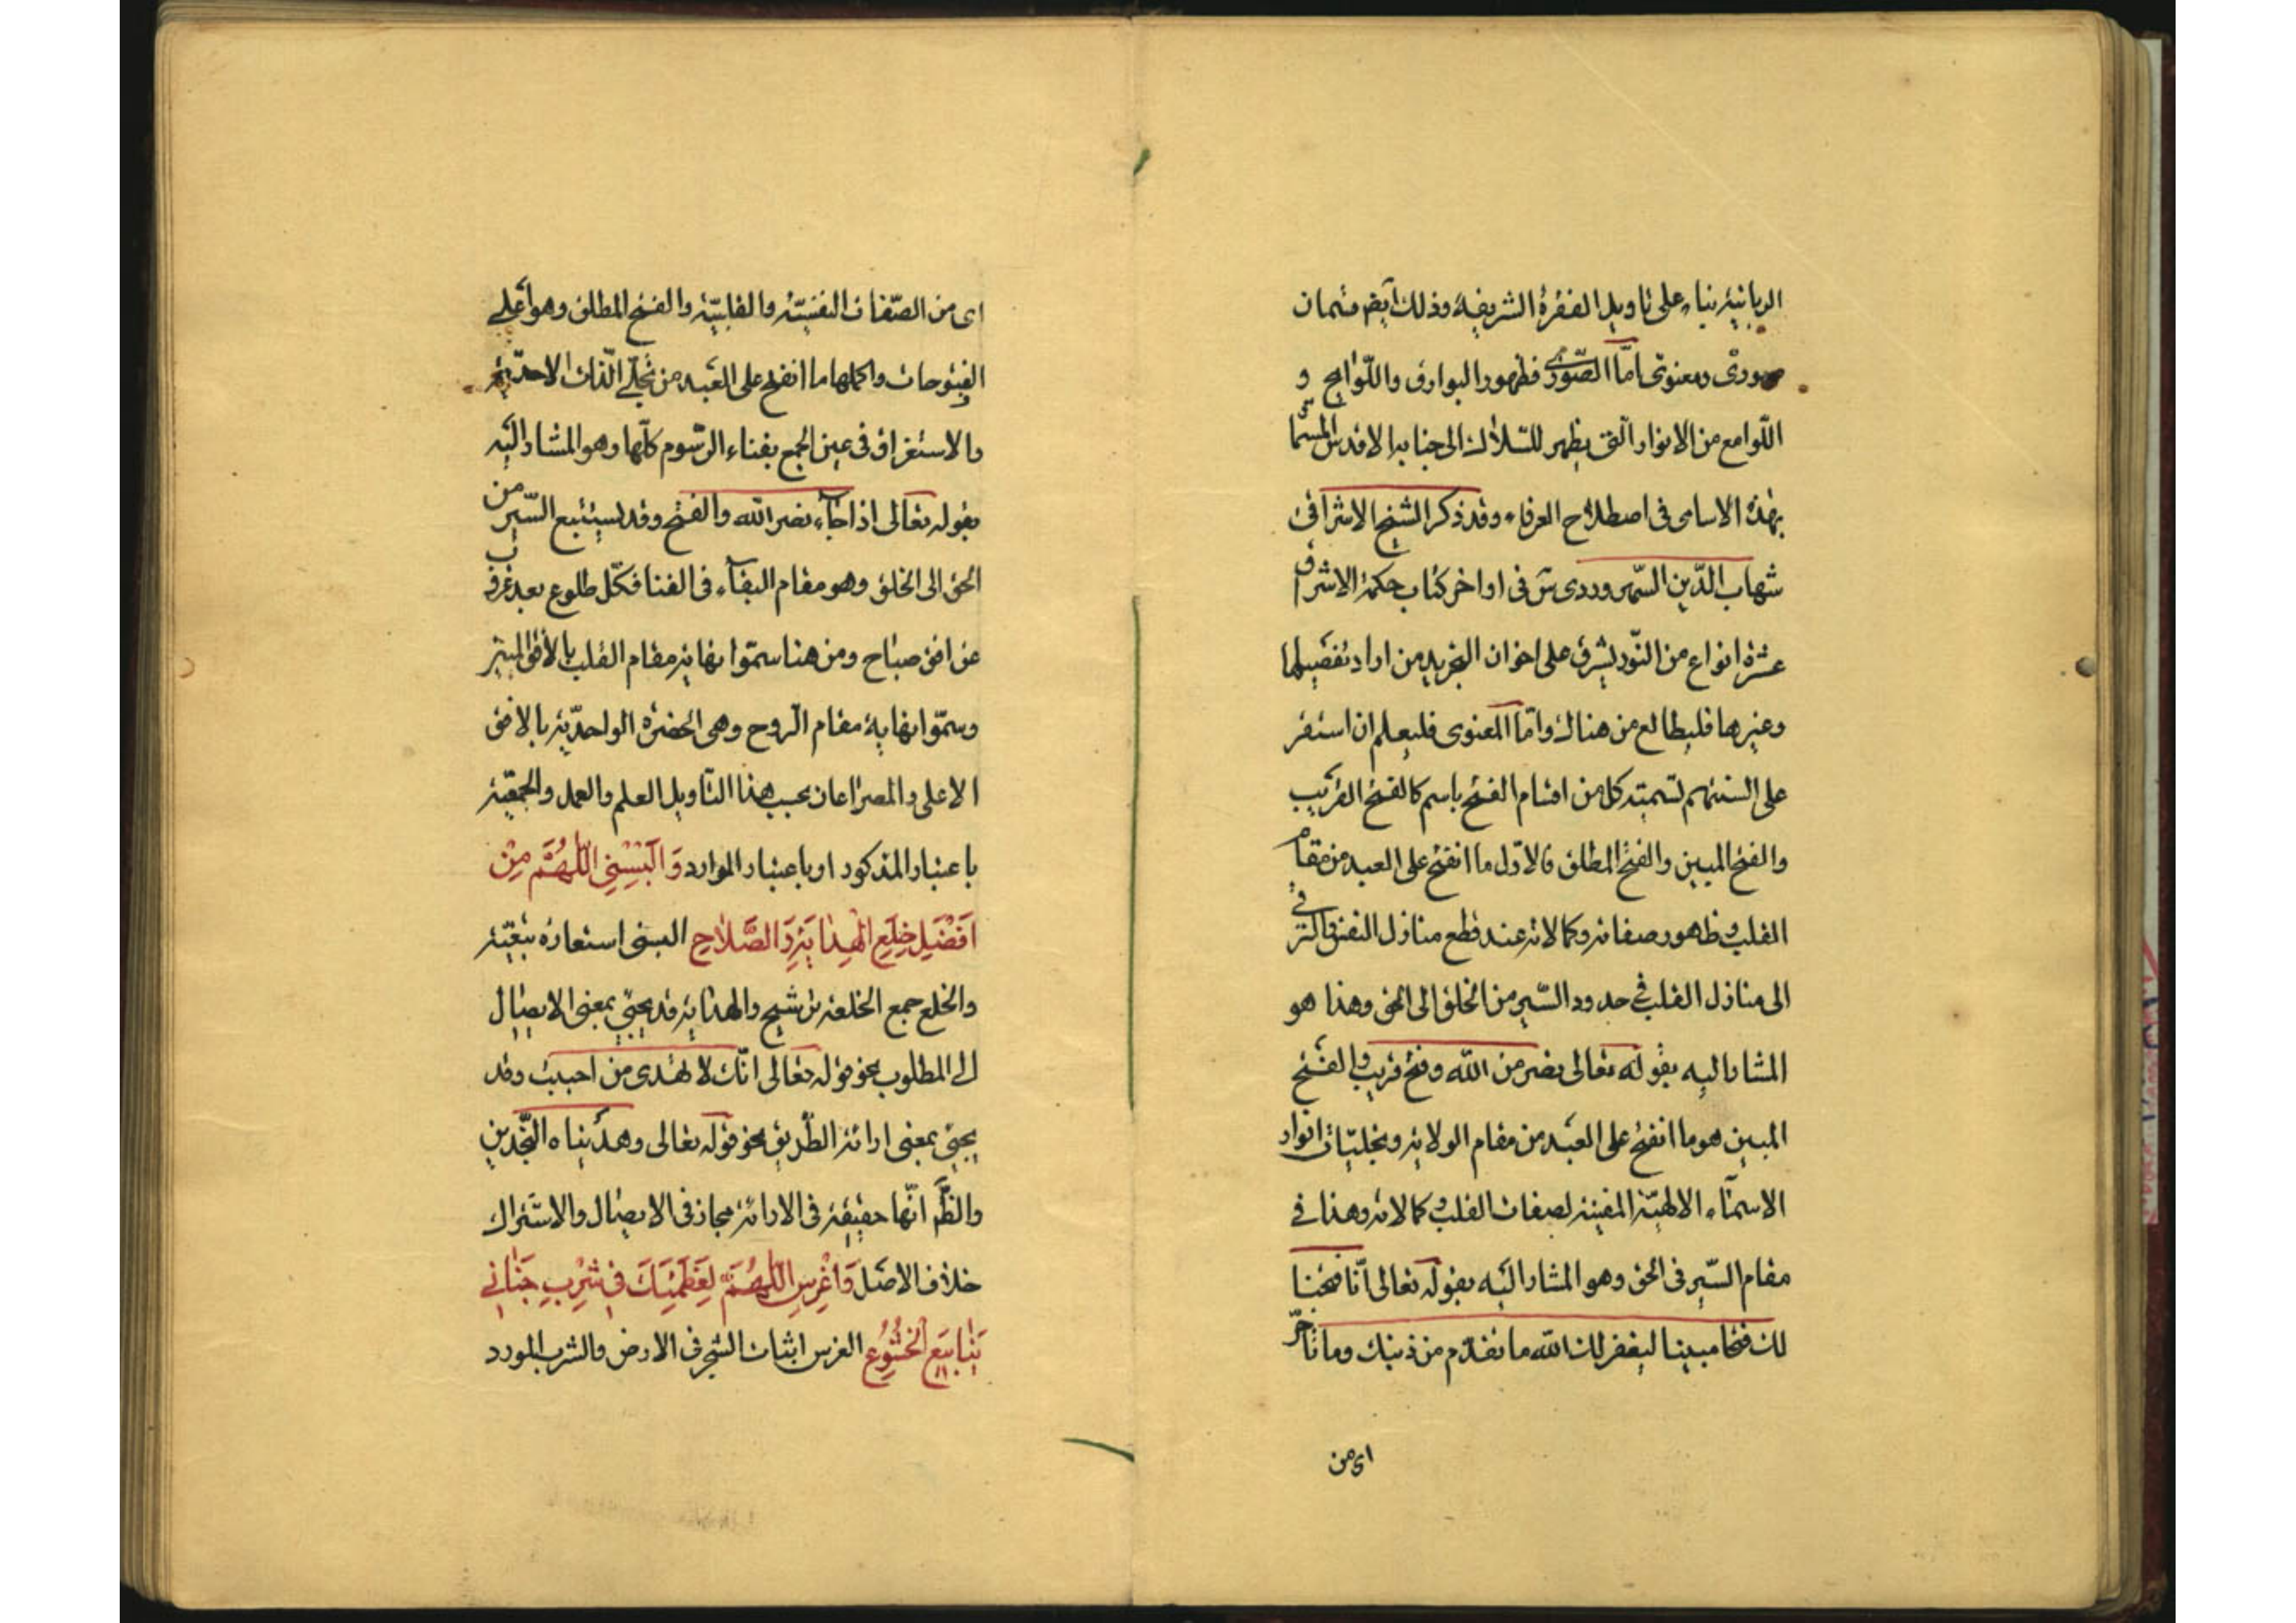 الربانية بناء على تاويل الفقرة الشريفة وذلك ايض قسمان
صورى ومعنوى اما الصورى فظهور البوارق واللوايح و
اللوامع من الانوار التى يظهر للسلاك الى جنابه الاقدس المسمى
بهذه الاسامى فى اصطلاح العرفاء وقد ذكر الشيخ الاشراقى
شهاب الدين السهروردى س فى اواخر كتاب حكمة الاشراق
عشرة انواع من النور يشرق على اخوان التجريد من اراد تفصيلها
وغيرها فليطالع من هناك واما المعنوى فليعلم ان استقر
على السنتهم تسمية كل من اقسام الفتح باسم كالفتح القريب
والفتح المبين والفتح المطلق فالاول ما انفتح على العبد من مقام
القلب وظهور صفاته وكمالاته عند قطع منازل النفس والترقى
الى منازل القلب فى حدود السير من الخلق الى الحق وهذا هو
المشار اليه بقوله تعالى نصر من الله وفتح قريب والفتح
المبين هو ما انفتح على العبد من مقام الولاية وتجليات انوار
الاسماء الالهية المفنية لصفات القلب وكمالاته وهذا فى
مقام السير فى الحق وهو المشار اليه بقوله تعالى انا فتحنا
لك فتحا مبينا ليغفر لك الله ما تقدم من ذنبك وما تاخر
اى من
اى من الصفات النفسية والقلبية والفتح المطلق وهو اعلى
الفتوحات واكملها ما انفتح على العبد من تجلى الذات الاحدية
والاستغراق فى عين الجمع بفناء الرسوم كلها وهو المشار اليه
بقوله تعالى اذا جاء نصر الله والفتح وقد يستتبع السير من
الحق الى الخلق وهو مقام البقاء فى الفنا فكل طلوع بعد غروب
عن افق صباح ومن هنا سموا نهاية مقام القلب بالافق المبين
وسموا نهاية مقام الروح وهى الحضرة الواحدية بالافق
الاعلى والمصراعان بحسب هذا التاويل العلم والعمل والجمعية
باعتبار المذكور او باعتبار الموارد وَاَلْبِسْنِى اللّهُمَّ مِنْ
اَفْضَلِ خِلَعِ الْهِدايَةِ وَ الصَّلاحِ البسنى استعارة تبعية
والخلع جمع الخلعة ترشيح والهداية قد يجيئ بمعنى الايصال
الى المطلوب نحو قوله تعالى انك لا تهدى من احببت وقد
يجيئ بمعنى ارائة الطريق نحو قوله تعالى وهديناه النجدين
والظّ انها حقيقة فى الارائة مجاز فى الايصال والاشتراك
خلاف الاصل وَاغْرِسِ اللّهُمَّ لِعَظَمَتِكَ فى شِرْبِ جَنانى
يَنابيعَ الْخُشُوعِ الغرس اثبات الشجر فى الارض والشرب المورد